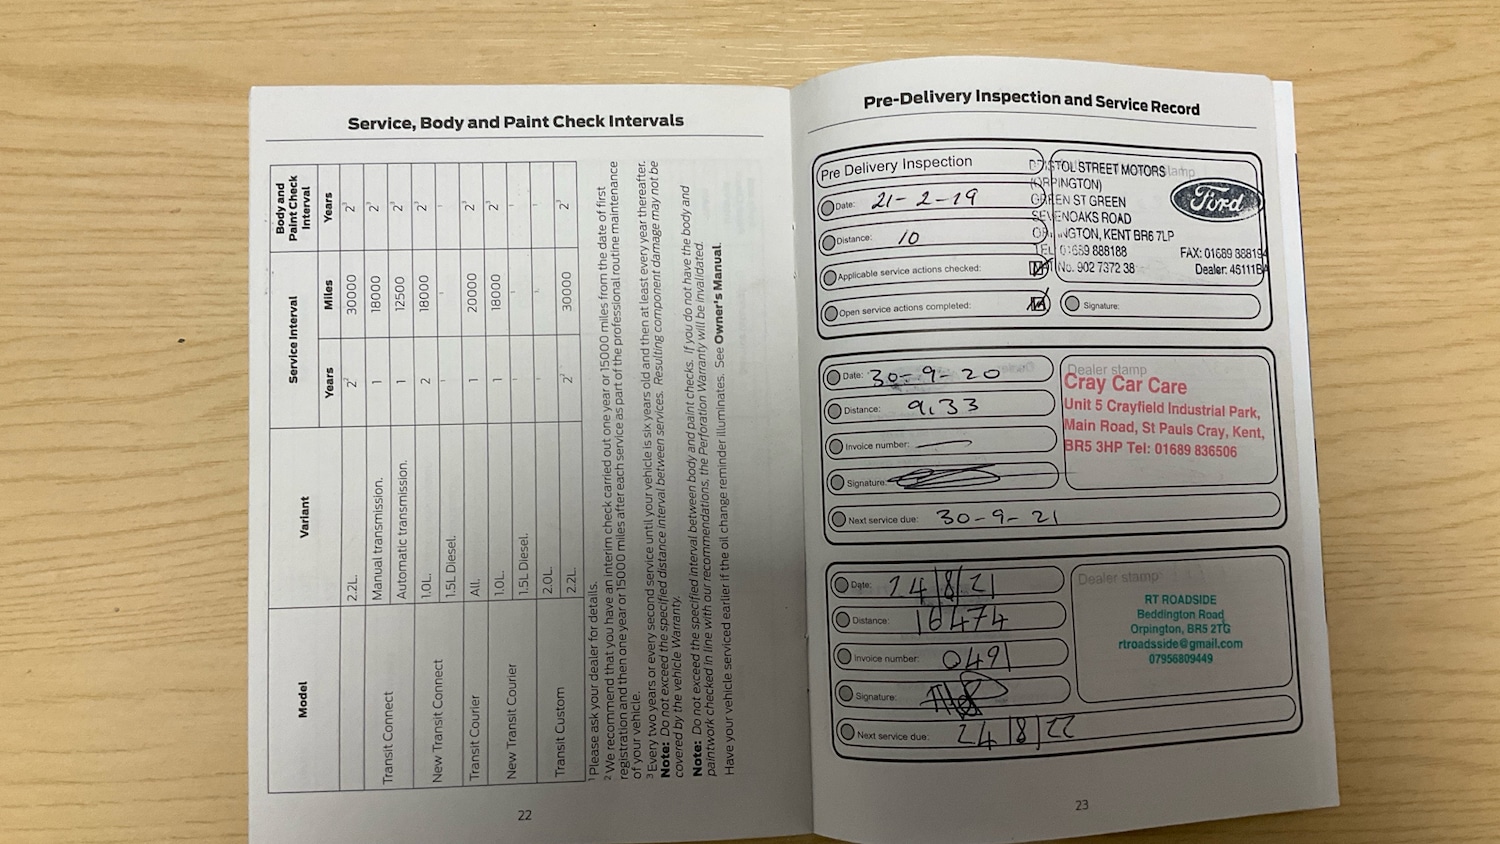 Service, Body and Paint Check Intervals
Model
Variant
Service Interval
Body and Paint Check Interval
Years
Miles
Years
2.2L. 2² 30000 2³
Transit Connect
Manual transmission. 1 18000 2³
Automatic transmission. 1 12500 2³
New Transit Connect
1.0L. 2 18000 2³
1.5L Diesel. - - -
Transit Courier
All. 1 20000 2³
New Transit Courier
1.0L. 1 18000 2³
1.5L Diesel. - - -
Transit Custom
2.0L. - - -
2.2L. 2² 30000 2³
¹ Please ask your dealer for details.
² We recommend that you have an interim check carried out one year or 15000 miles from the date of first
registration and then one year or 15000 miles after each service as part of the professional routine maintenance
of your vehicle.
³ Every two years or every second service until your vehicle is six years old and then at least every year thereafter.
Note: Do not exceed the specified distance interval between services. Resulting component damage may not be
covered by the vehicle Warranty.
Note: Do not exceed the specified interval between body and paint checks. If you do not have the body and
paintwork checked in line with our recommendations, the Perforation Warranty will be invalidated.
Have your vehicle serviced earlier if the oil change reminder illuminates. See Owner's Manual.
22
Pre-Delivery Inspection and Service Record
Pre Delivery Inspection
Date: 21-2-19
Distance: 10
Applicable service actions checked:
Open service actions completed:
BRISTOL STREET MOTORS
(ORPINGTON)
GREEN ST GREEN
SEVENOAKS ROAD
ORPINGTON, KENT BR6 7LP
TEL: 01689 888188 FAX: 01689 888194
VAT No. 902 7372 38 Dealer: 45111BA
Ford
stamp
Signature:
Date: 30-9-20
Distance: 9.33
Invoice number: —
Signature:
Next service due: 30-9-21
Dealer stamp
Cray Car Care
Unit 5 Crayfield Industrial Park,
Main Road, St Pauls Cray, Kent,
BR5 3HP Tel: 01689 836506
Date: 24/8/21
Distance: 16474
Invoice number: 0491
Signature:
Next service due: 24/8/22
Dealer stamp
RT ROADSIDE
Beddington Road
Orpington, BR5 2TG
rtroadsside@gmail.com
07956809449
23